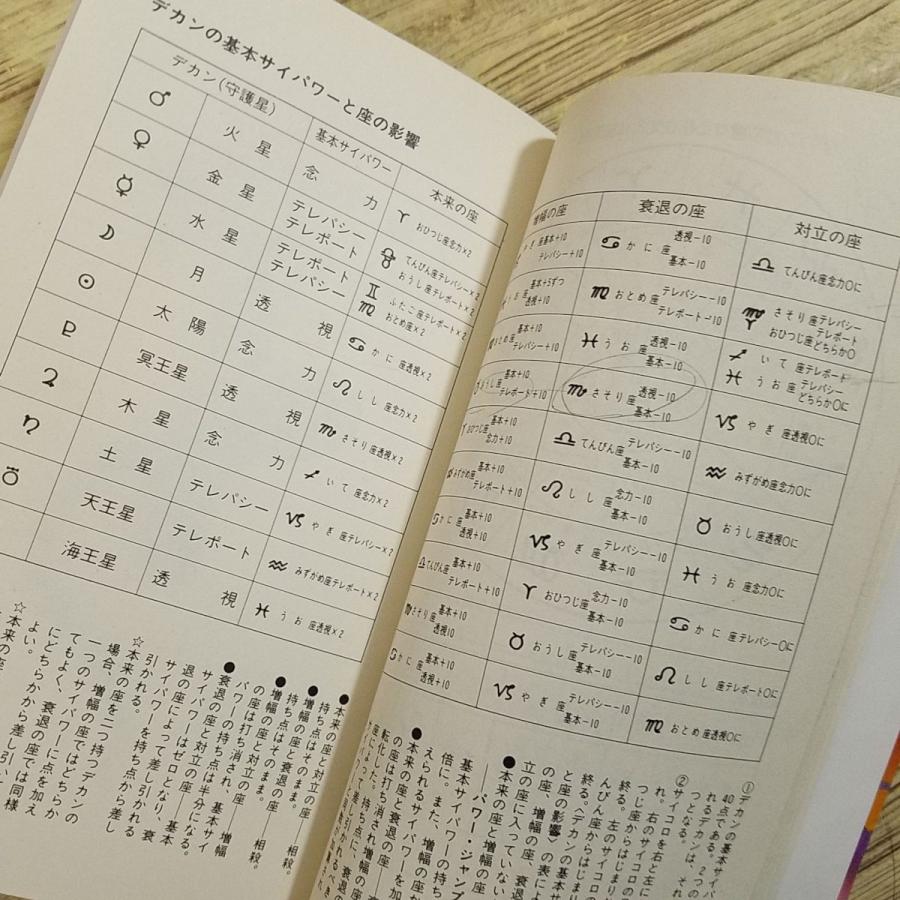 デカンの基本サイパワーと座の影響
デカン(守護星) 基本サイパワー 本来の座
♂ 火星 念力 ♈ おひつじ座念力×2
♀ 金星 テレパシー テレポート てんびん座テレパシー×2 おうし座テレポート×2
☿ 水星 テレポート テレパシー ♊ ふたご座テレポート×2 ♍ おとめ座×2
☽ 月 透視 ♋ かに座透視×2
☉ 太陽 念力 ♌ しし座念力×2
冥王星 透視 ♏ さそり座透視×2
♃ 木星 念力 ♐ いて座念力×2
♄ 土星 テレパシー ♑ やぎ座テレパシー×2
天王星 テレポート ♒ みずがめ座テレポート×2
海王星 透視 ♓ うお座透視×2
●本来の座と対立の座――相殺。
持ち点はそのまま。
●増幅の座と衰退の座――相殺。
持ち点はそのまま。
●増幅の座と対立の座――増幅
の座は打ち消され、基本サイ
パワーの持ち点は半分になる。
●衰退の座と対立の座――基本
サイパワーはゼロとなり、衰
退の座によって差し引かれる
サイパワーを持ち点から差し
引かれる。
☆本来の座を二つ持つデカンの
場合、増幅の座ではどちらか
一つのサイパワーに点を加え
てもよく、衰退の座では同様
にどちらかから差し引い
よい。
☆本来の座
増幅の座 衰退の座 対立の座
やぎ座 基本+10 テレパシー+10 ♋ かに座 透視-10 基本-10 ♎ てんびん座念力0に
うお座 基本+5ずつ 透視+10 ♍ おとめ座 テレパシー-10 テレポート-10 ♏ さそり座テレパシー テレポート ♈ おひつじ座どちらか0
おとめ座 テレパシー+10 ♓ うお座 透視-10 基本-10 ♐ いて座テレポート ♓ うお座テレパシー どちらか0に
おうし座 基本+10 テレポート+10 ♏ さそり座 透視-10 基本-10 ♑ やぎ座透視0に
おひつじ座 基本+10 念力+10 ♎ てんびん座 テレパシー-10 基本-10 ♒ みずがめ座念力0に
みずがめ座 基本+10 テレポート+10 ♌ しし座 念力-10 基本-10 ♉ おうし座透視0に
かに座 基本+10 透視+10 ♑ やぎ座 テレパシー-10 基本-10 ♓ うお座念力0に
てんびん座 基本+10 テレポート+10 ♈ おひつじ座 念力-10 基本-10 ♋ かに座テレパシー0に
さそり座 基本+10 透視+10 ♉ おうし座 テレポート-10 基本-10 ♌ しし座テレポート0に
かに座 基本+10 透視+10 ♑ やぎ座 テレパシー-10 基本-10 ♍ おとめ座透視0に
①デカンの基本サイパ
40点である。2つの
れるデカンは、それ
つとなる。
②サイコロを右と左に
れ。右のサイコロの
つじ座からはじまり
終る。左のサイコロの
んびん座からはじまり
終る。〈デカンの基本サ
と座の影響〉の表によ
の座、増幅の座、衰退
立の座に入っていない
●本来の座と増幅の座
――パワー・ジャンプ
基本サイパワーの持ち
倍に。また、増幅の座か
えられるサイパワーを加
●本来の座と衰退の座
の座は打ち消され、衰退